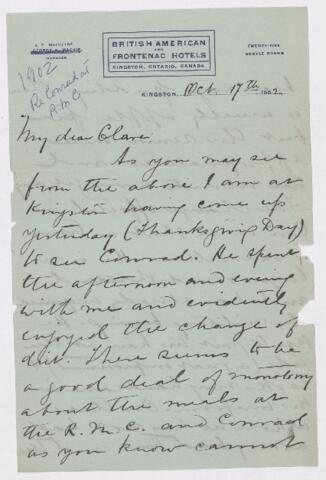 BRITISH AMERICAN
AND
FRONTENAC HOTELS
KINGSTON, ONTARIO, CANADA.
MANAGER
TWENTY-FIVE
SAMPLE ROOMS
1902
Re Conrad at
R.M.C
KINGSTON, Oct. 17th 1902
My dear Clare,
As you may see
from the above I am at
Kingston having come up
yesterday (Thanksgiving Day)
to see Conrad. He spent
the afternoon and evening
with me and evidently
enjoyed the change of
diet. There seems to be
a good deal of monotony
about the meals at
the R.M.C. and Conrad
as you know cannot